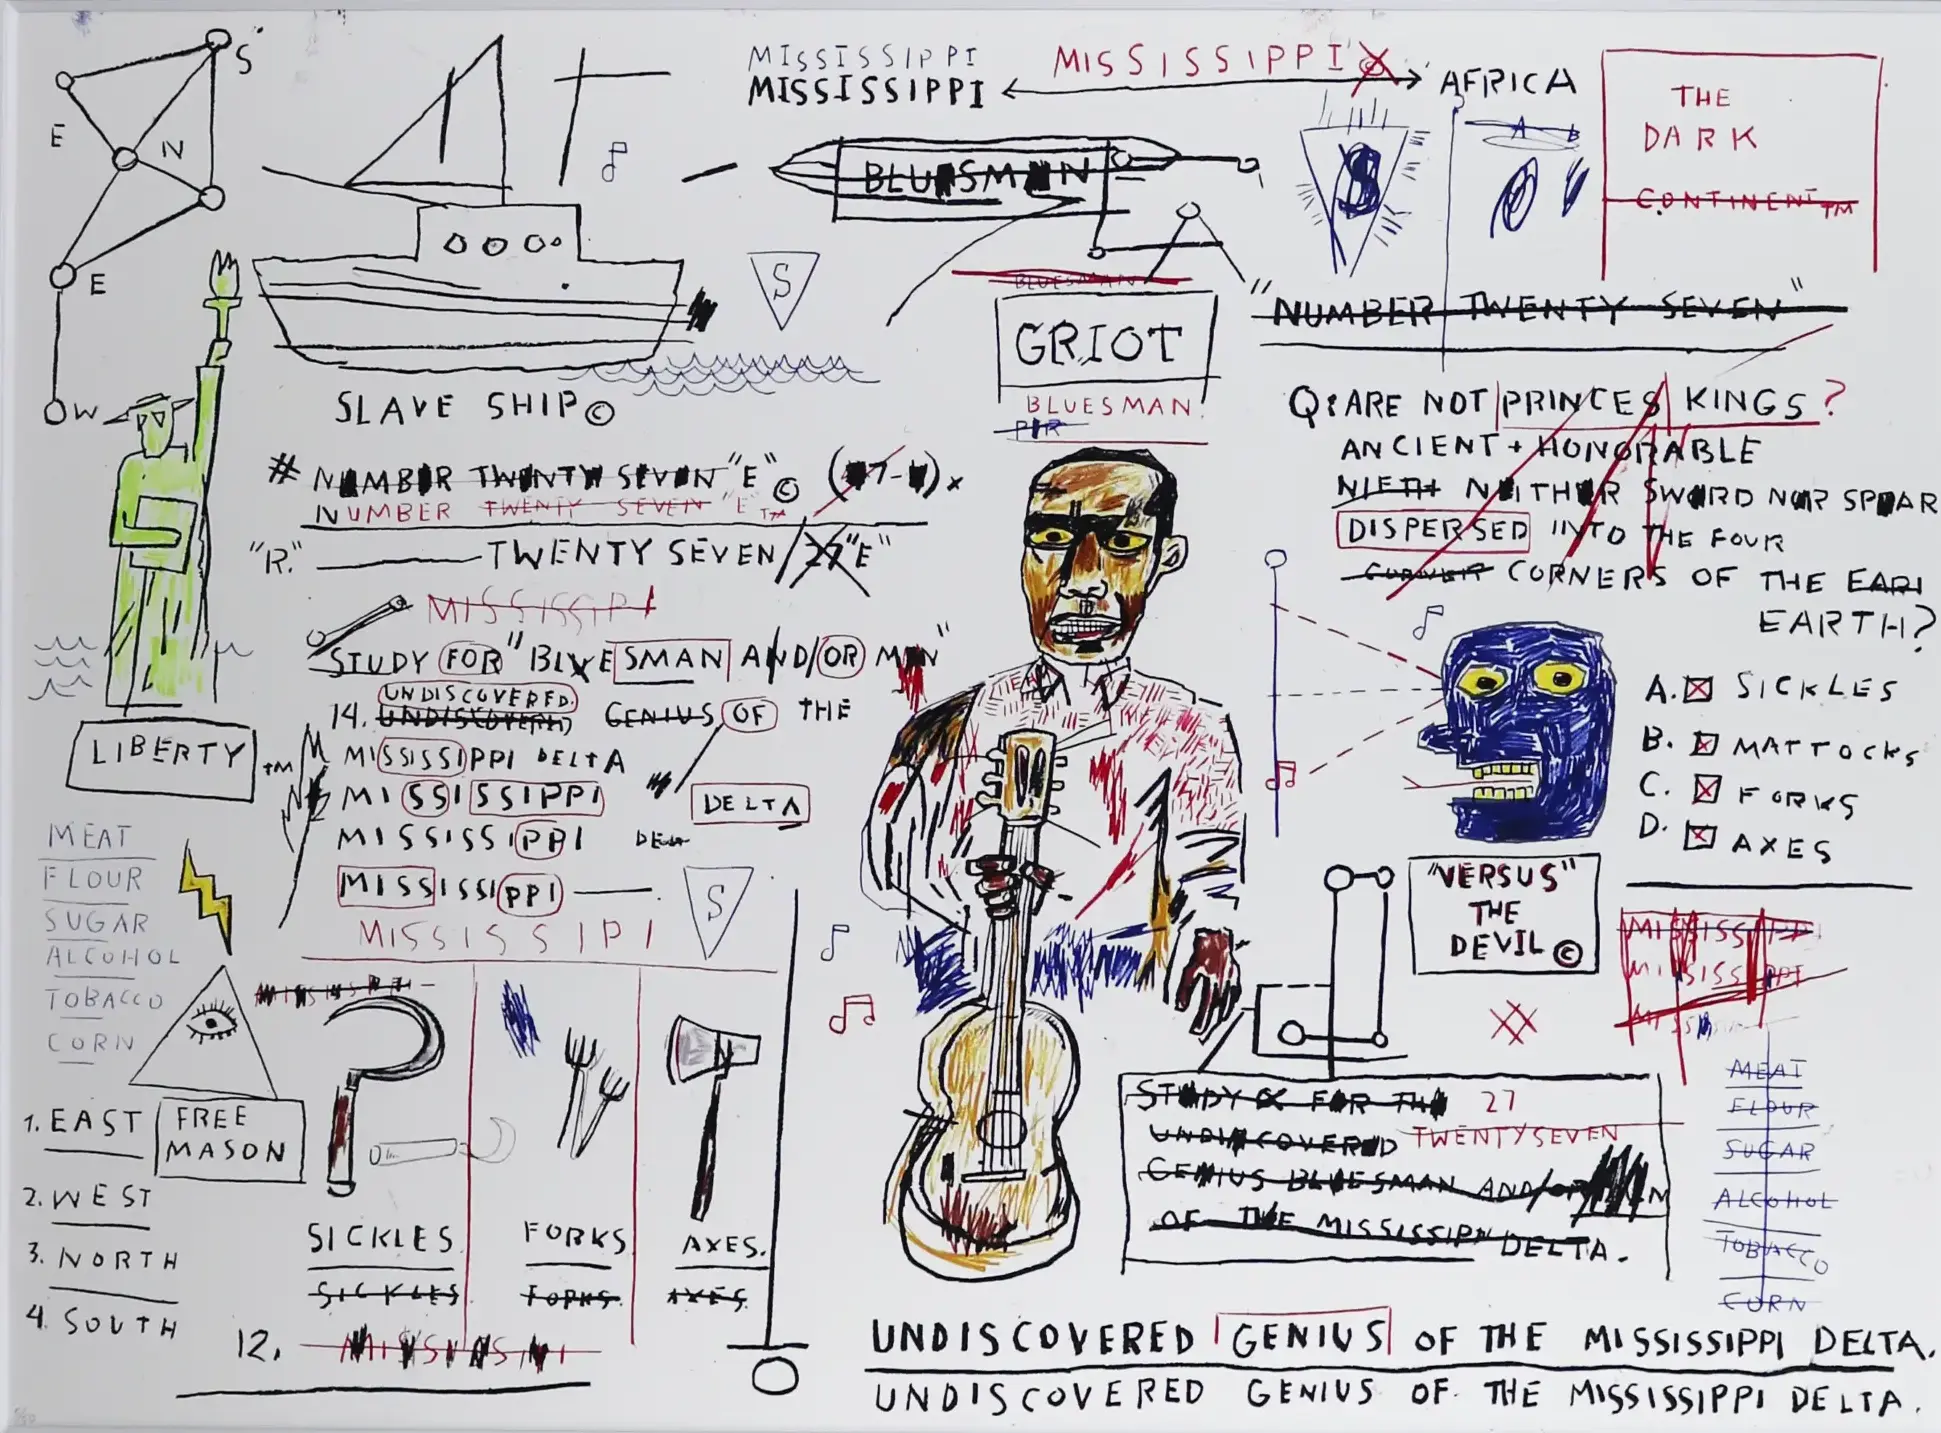 S
E
N
E
W
MISSISSIPPI
MISSISSIPPI
MISSISSIPPI
AFRICA
THE
DARK
CONTINENT™
BLUESMAN
S
A B
S
BLUESMAN
GRIOT
BLUESMAN
"NUMBER TWENTY SEVEN"
SLAVE SHIP©
# NUMBER TWENTY SEVEN "E"©
NUMBER TWENTY SEVEN "E"™
"R." TWENTY SEVEN/27"E"
MISSISSIPI
STUDY FOR "BLUESMAN AND/OR MAN"
UNDISCOVERED
14. UNDISCOVERED GENIUS OF THE
MISSISSIPPI DELTA
MISSISSIPPI
DELTA
MISSISSIPPI
MISSISSIPPI
S
MISSISSIPI
Q: ARE NOT PRINCES KINGS?
ANCIENT + HONORABLE
NIETH NEITHER SWORD NOR SPEAR
DISPERSED INTO THE FOUR
CORNER CORNERS OF THE EAR
EARTH?
A. SICKLES
B. MATTOCKS
C. FORKS
D. AXES
"VERSUS"
THE
DEVIL ©
MISSISSIPPI
MISSISSIPPI
LIBERTY™
MEAT
FLOUR
SUGAR
ALCOHOL
TOBACCO
CORN
FREE
MASON
1. EAST
2. WEST
3. NORTH
4. SOUTH
SICKLES
SICKLES
FORKS
FORKS
AXES.
AXES.
12.
STUDY FOR THE 27
UNDISCOVERED TWENTYSEVEN
GENIUS BLUESMAN AND/OR MAN
OF THE MISSISSIPPI DELTA.
MEAT
FLOUR
SUGAR
ALCOHOL
TOBACCO
CORN
UNDISCOVERED GENIUS OF THE MISSISSIPPI DELTA.
UNDISCOVERED GENIUS OF THE MISSISSIPPI DELTA.